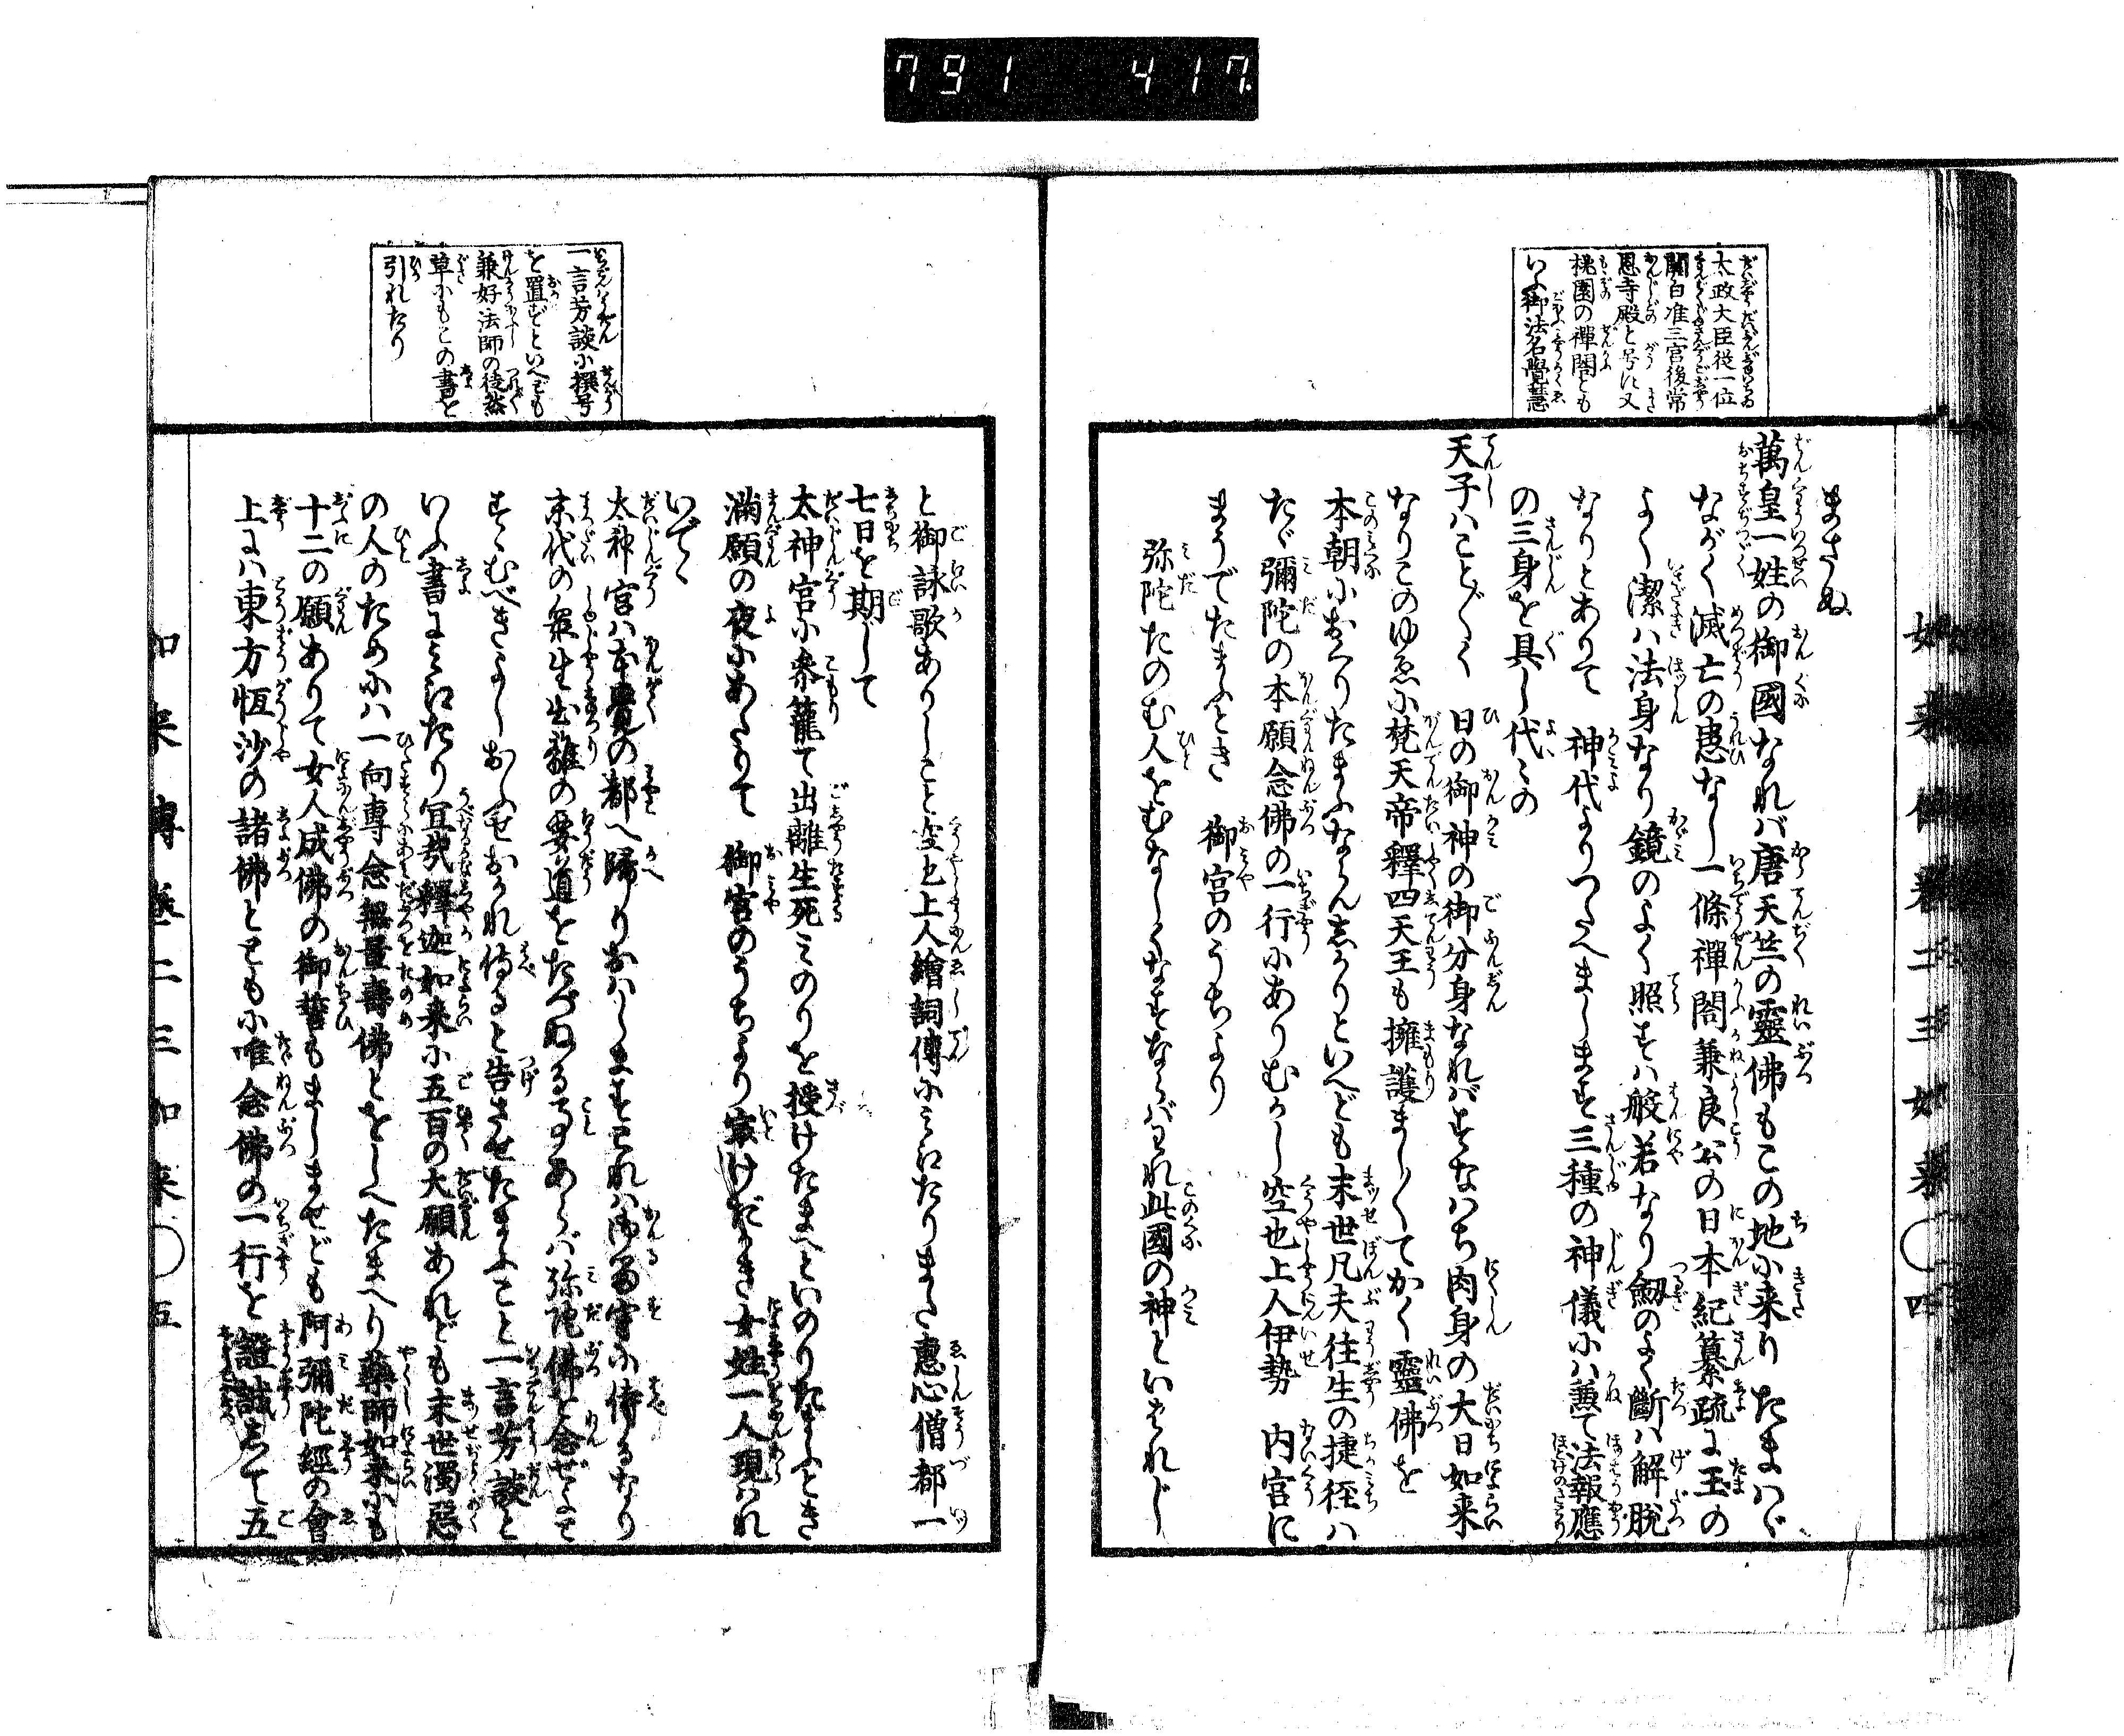 791 417
太政大臣從一位
關白准三宮後常
恩寺殿と号に又
桃園の禪閤とも
いふ御法名覺慧
まさぬ
萬皇一姓の御國なれバ唐天竺の靈佛もこの地に来り たまハヾ
ながく滅亡の患なし一條禪閤兼良公の日本紀纂疏に玉の
よく潔ハ法身なり鏡のよく照すハ般若なり劔のよく斷ハ解脱
なりとありて 神代よりつたへまします三種の神儀にハ兼て法報應
の三身を具し代々の
天子ハこと〴〵く 日の御神の御分身なれバすなハち肉身の大日如来
なりこのゆゑに梵天帝釋四天王も擁護まし〳〵てかく靈佛を
本朝におくりたまふならんしかりといへども末世凡夫往生の捷徑ハ
たヾ彌陀の本願念佛の一行にありむかし空也上人伊勢 内宮に
まうでたまふとき 御宮のうちより
弥陀たのむ人をむなしくなすならバわれ此國の神といはれじ
如来傳卷二三如来〇四
一言芳談に撰号
を置ずといへども
兼好法師の徒然
草にもこの書を
引れたり
と御詠歌ありしこと空也上人繪詞傳にミえたりまた惠心僧都一
七日を期して
太神宮に参籠て出離生死ミのりを授けたまへといのりたまふとき
滿願の夜にあたりて 御宮のうちより けだかき女姓一人現ハれ
いでヽ
太神宮ハ本覺の都へ歸りおハしますわれハ御留守に侍るなり
末代の衆生出離の要道をたづぬる事あらバ弥陀佛を念ぜよと
すヽむべきよしおふせおかれ侍ると告させたまふこと一言芳談と
いふ書にミえたり冝哉釋迦如来に五百の大願あれども末世濁惡
の人のためにハ一向專念無量壽佛とをしへたまへり藥師如来にも
十二の願ありて女人成佛の御誓もましませども阿彌陀經の會
上にハ東方恆沙の諸佛とともに唯念佛の一行を證誠して五
如来傳卷二三如来〇五